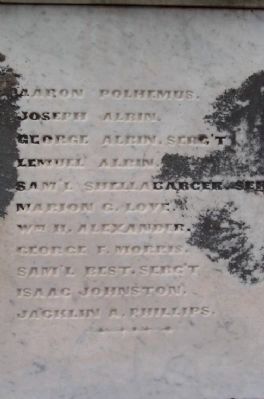 AARON POLHEMUS.
JOSEPH ALBIN.
GEORGE ALBIN. SERG'T
LEMUEL ALBIN.
SAM'L SHELLABARGER SER
MARION G. LOVE.
WM H. ALEXANDER.
GEORGE F. MORRIS.
SAM'L BEST. SERG'T
ISAAC JOHNSTON.
JACKLIN A. PHILLIPS.